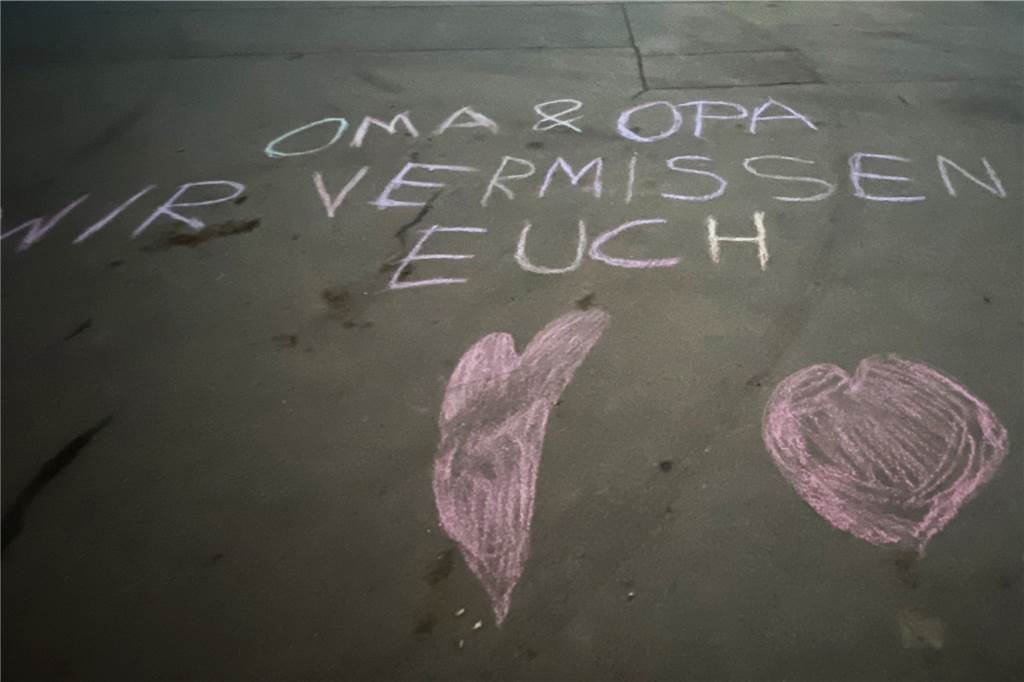 OMA & OPA
WIR VERMISSEN
EUCH